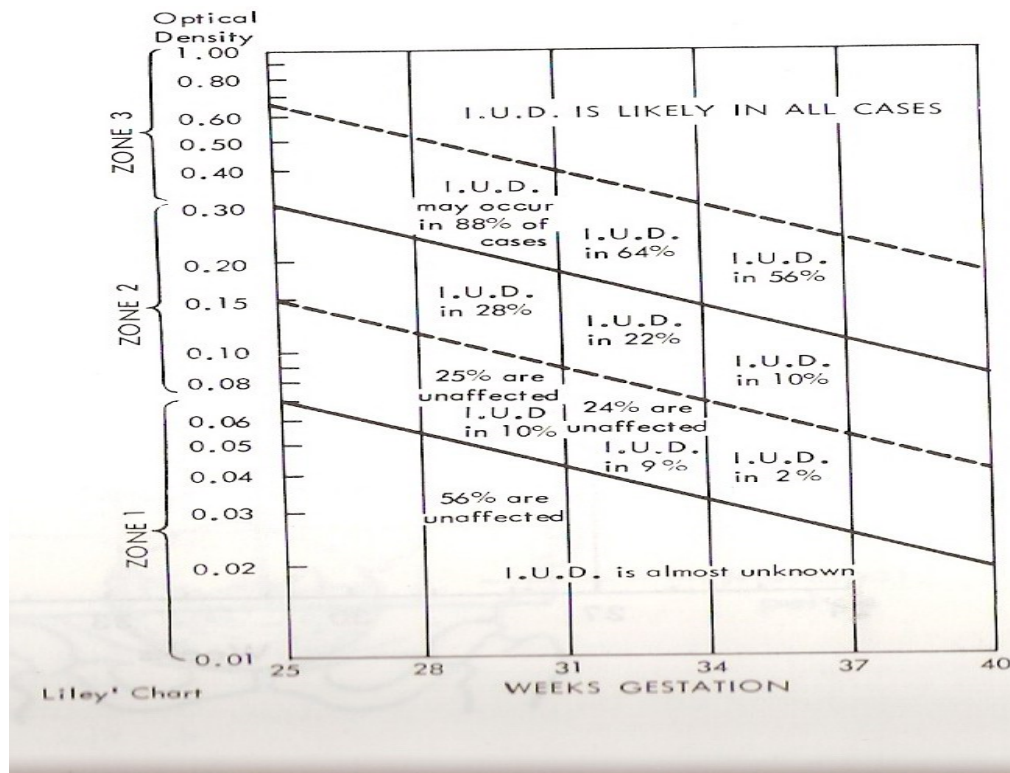 Optical
Density
1.00
0.80
0.60
0.50
0.40
0.30
0.20
0.15
0.10
0.08
0.06
0.05
0.04
0.03
0.02
0.01
ZONE 3
ZONE 2
ZONE 1
I.U.D. IS LIKELY IN ALL CASES
I.U.D.
may occur
in 88% of
cases
I.U.D.
in 64%
I.U.D.
in 56%
I.U.D.
in 28%
I.U.D.
in 22%
I.U.D.
in 10%
25% are
unaffected
I.U.D
in 10%
24% are
unaffected
I.U.D.
in 9%
I.U.D.
in 2%
56% are
unaffected
I.U.D. is almost unknown
25 28 31 34 37 40
WEEKS GESTATION
Liley' Chart